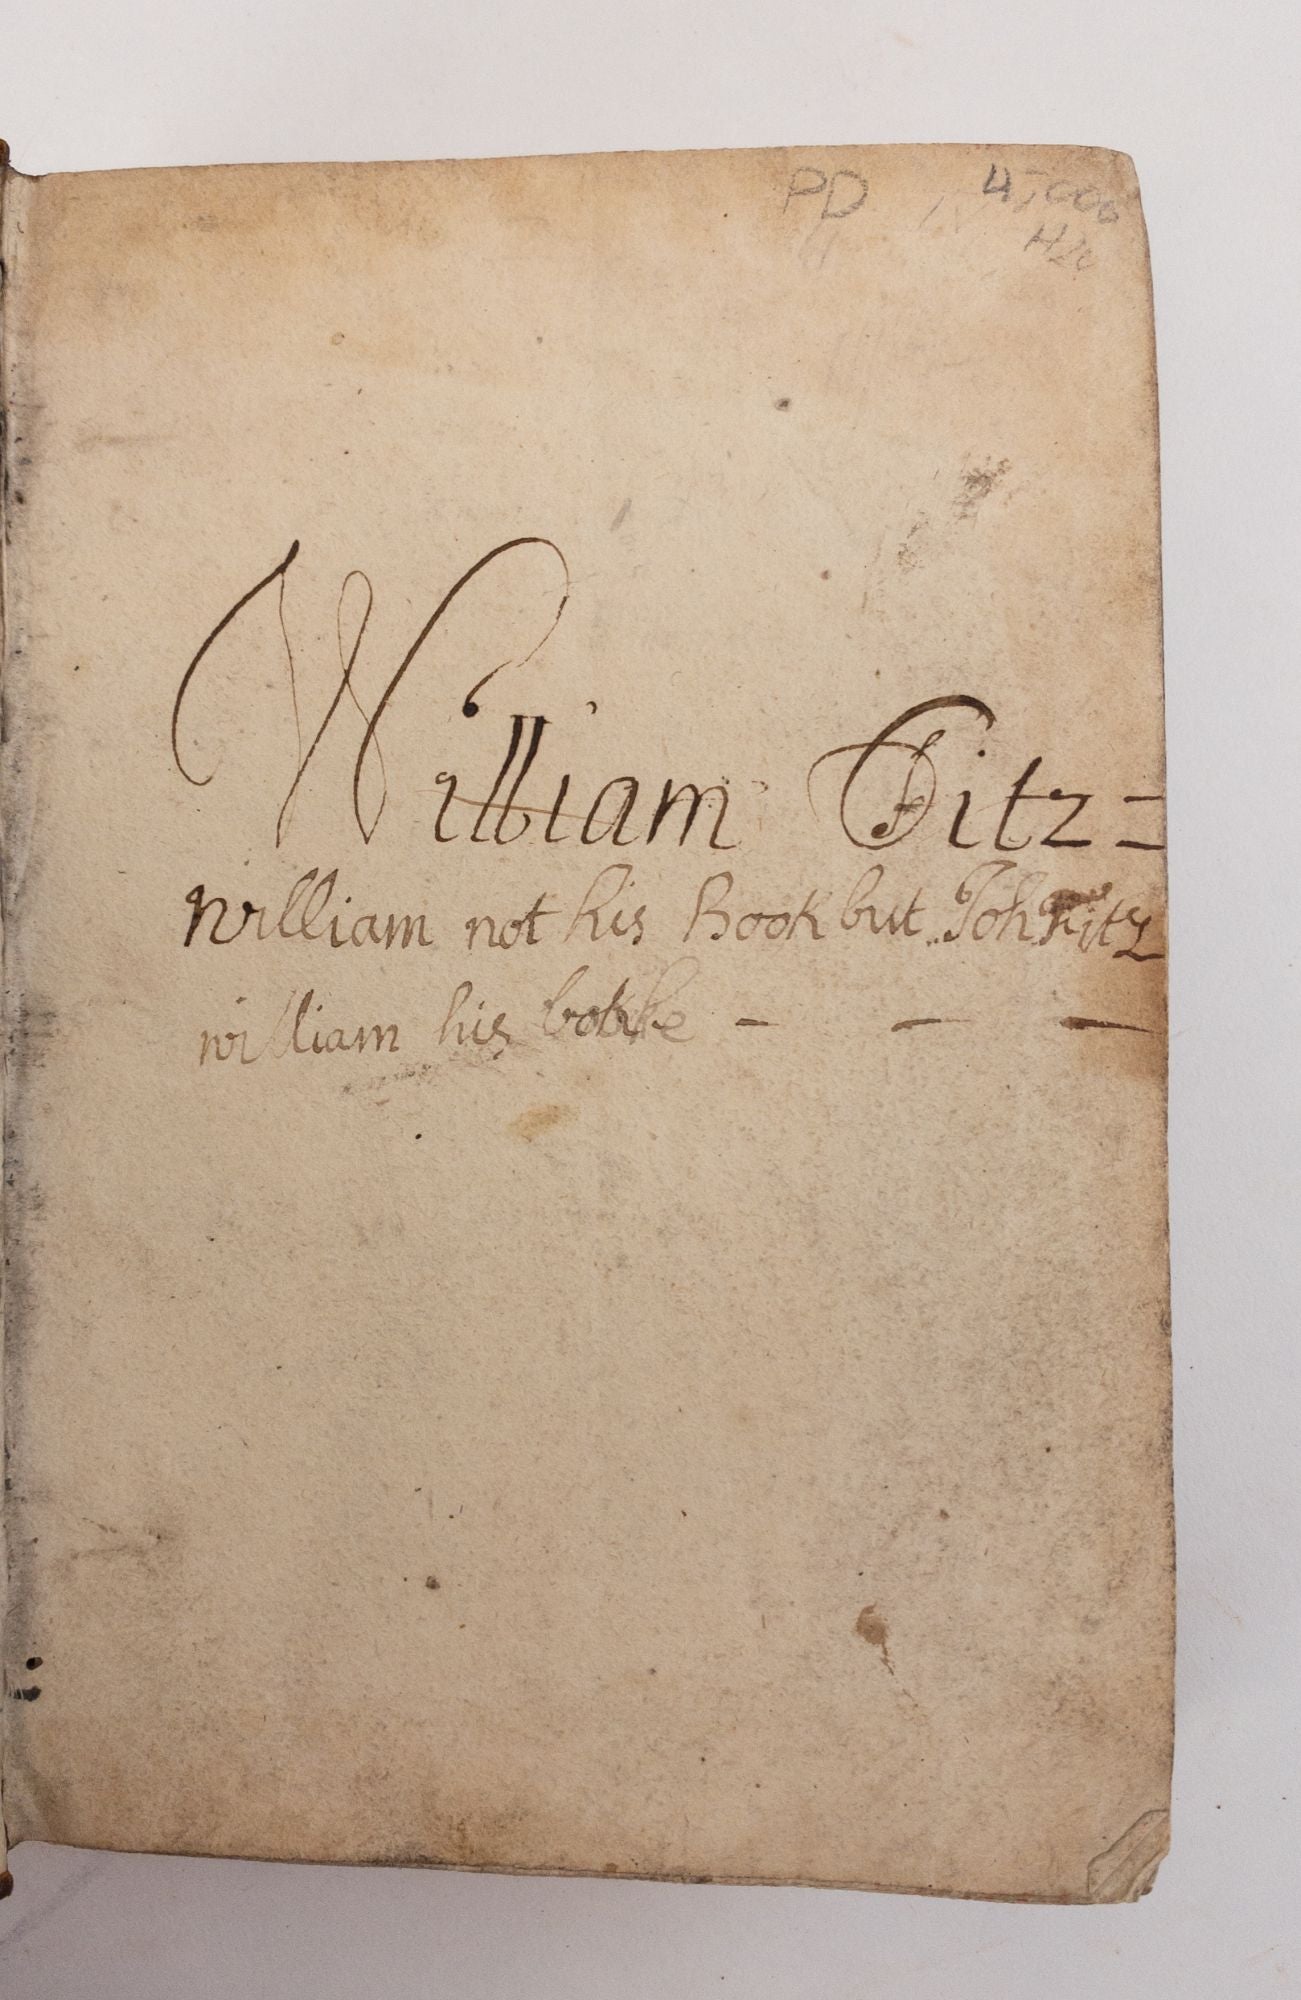 PD 4,000
William Fitz=
william not his Book but Joh Fitz
william his booke - - -